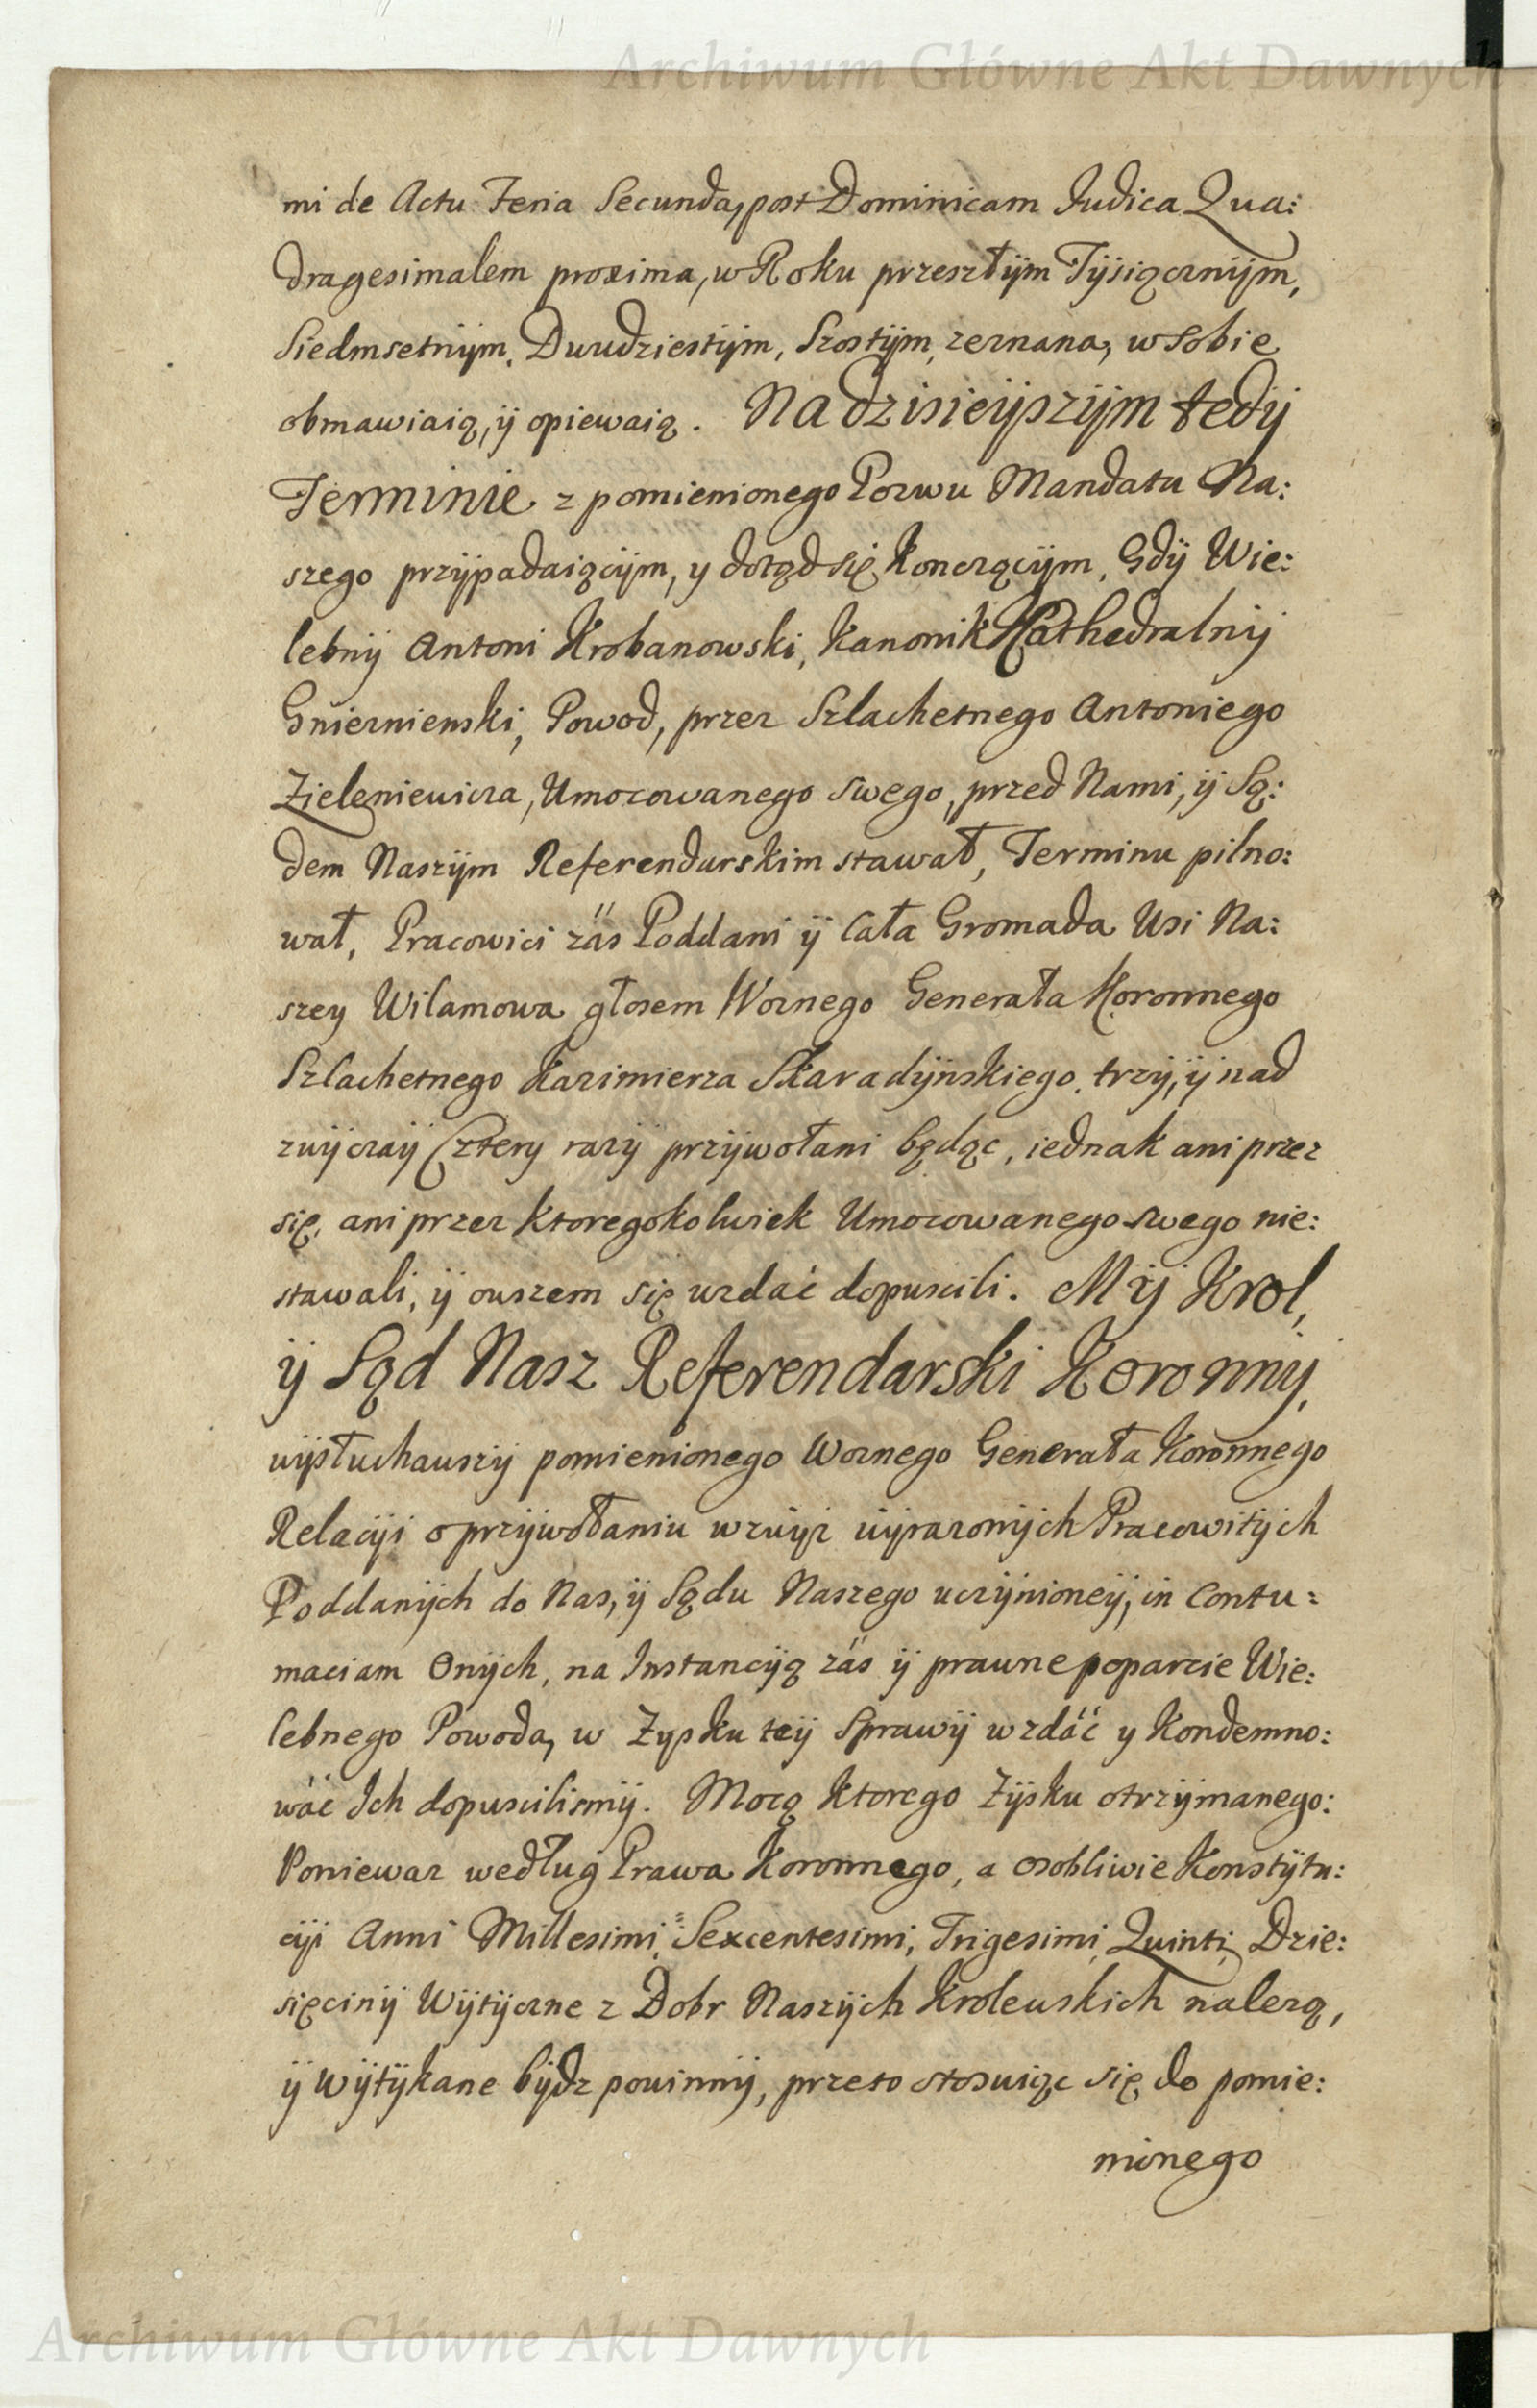 Archiwum Główne Akt Dawnych
mi de Actu Feria Secunda, post Dominicam Judica Qua:
dragesimalem proxima, w Roku przeszłÿm Tÿsiącznÿm,
Siedmsetnÿm, Dwudziestÿm, Szostÿm, zeznana, w sobie
obmawiaią, ÿ opiewaią. Na dzisieÿszÿm tedÿ
Terminie z pomienionego Pozwu Mandatu Na:
szego przÿpadaiącÿm, y dotąd się kończącÿm, Gdÿ Wie:
lebnÿ Antoni Krobanowski, Kanonik Kathedralnÿ
Gnieznienski, Powod, przez Szlachetnego Antoniego
Zieleniewicza, Umocowanego swego, przed Nami, ÿ Są:
dem Naszÿm Referendarskim stawał, Terminu pilno:
wał, Pracowici zás Poddani ÿ Cała Gromada Wsi Na:
szey Wilamowa głosem Woznego Generała Koronnego
Szlachetnego Kazimierza Skaradÿnskiego, trzÿ, ÿ nad
zwÿczaÿ Cztery razÿ przÿwołani będąc, iednak ani przez
się, ani przez ktoregokolwiek Umocowanego swego nie:
stawali, ÿ owszem się wzdać dopuscili. Mÿ Krol,
ÿ Sąd Nasz Referendarski Koronny,
wÿsłuchawszÿ pomienionego Woznego Generała Koronnego
Relacÿi o przÿwołaniu wzwÿż wÿrazonÿch Pracowitÿch
Poddanÿch do Nas, ÿ Sądu Naszego uczÿnioneÿ, in Contu:
maciam Onÿch, na Instancÿą zás ÿ prawne poparcie Wie:
lebnego Powoda, w Zysku teÿ Sprawÿ wzdáć y Kondemno:
wáć Ich dopuscilismÿ. Mocą ktorego Zÿsku otrzÿmanego:
Poniewaz według Prawa Koronnego, a osobliwie Konstÿtu:
cÿi Anni Millesimi, Sexcentesimi, Trigesimi, Quinti, Dzie:
sięcinÿ Wÿtÿczne z Dobr Naszÿch Krolewskich nalezą,
ÿ wÿtÿkane bÿdz powinnÿ, przeto stosuiąc się do pomie:
nionego
Archiwum Główne Akt Dawnych